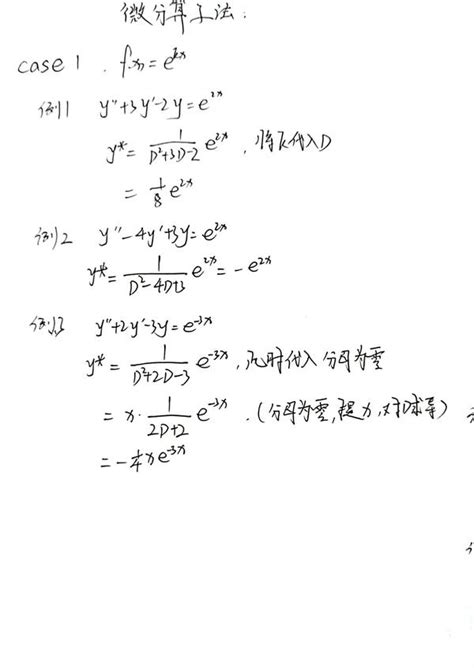 微分算子法:
case 1. f(x)=e^{kx}
例1 y''+3y'-2y=e^{2x}
y*= \frac{1}{D²+3D-2} e^{2x}, 将k代入D
= \frac{1}{8} e^{2x}
例2 y''-4y'+3y=e^{2x}
y*= \frac{1}{D²-4D+3} e^{2x}=-e^{2x}
例3 y''+2y'-3y=e^{-3x}
y*= \frac{1}{D²+2D-3} e^{-3x}, 此时代入分母为零
= x· \frac{1}{2D+2} e^{-3x}. (分母为零,提x,对D求导)
=-\frac{1}{4}xe^{-3x}